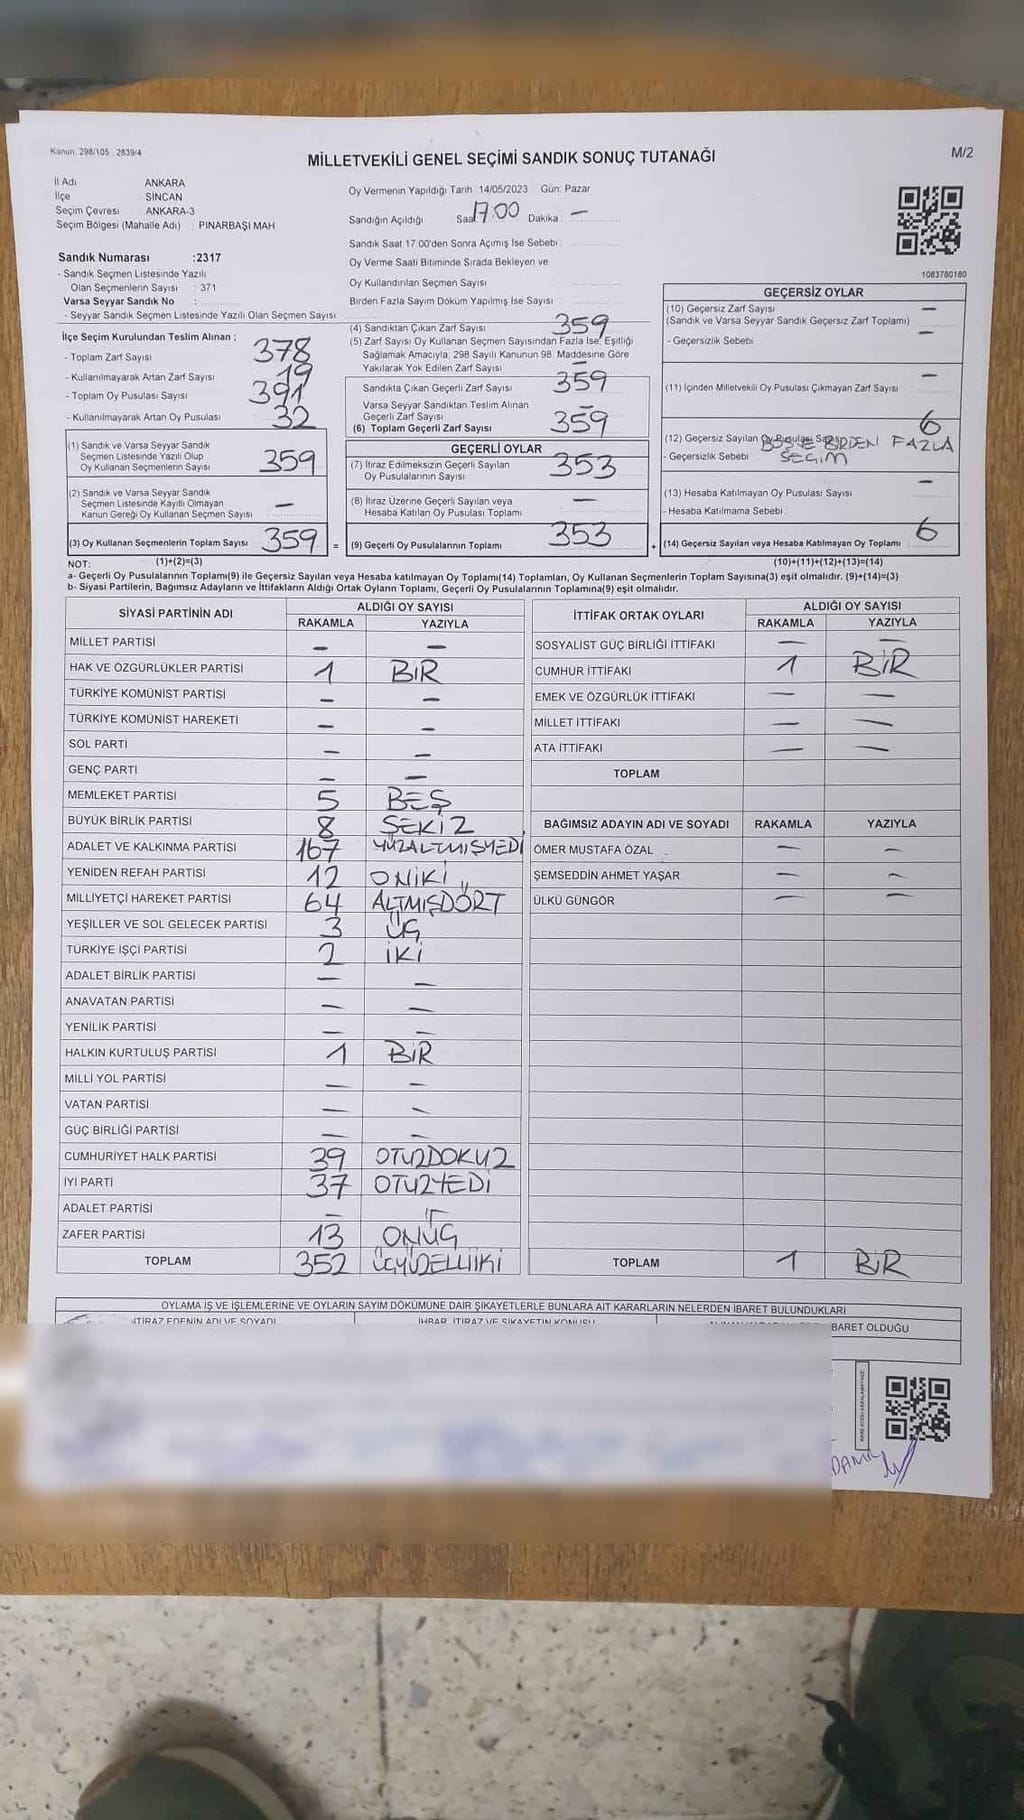 Kanun. 298/105 . 2839/4
MİLLETVEKİLİ GENEL SEÇİMİ SANDIK SONUÇ TUTANAĞI
M/2
İl Adı ANKARA
İlçe SİNCAN
Seçim Çevresi ANKARA-3
Seçim Bölgesi (Mahalle Adı) : PINARBAŞI MAH
Oy Vermenin Yapıldığı Tarih :14/05/2023 Gün: Pazar
Sandığın Açıldığı Saat 17:00 Dakika : —
Sandık Saat 17:00'den Sonra Açımış İse Sebebi :
Oy Verme Saati Bitiminde Sırada Bekleyen ve
Oy Kullandırılan Seçmen Sayısı
Birden Fazla Sayım Döküm Yapılmış İse Sayısı
Sandık Numarası :2317
- Sandık Seçmen Listesinde Yazılı
Olan Seçmenlerin Sayısı : 371
Varsa Seyyar Sandık No :
- Seyyar Sandık Seçmen Listesinde Yazılı Olan Seçmen Sayısı :
1083780180
İlçe Seçim Kurulundan Teslim Alınan :
- Toplam Zarf Sayısı 378
- Kullanılmayarak Artan Zarf Sayısı 19
- Toplam Oy Pusulası Sayısı 391
- Kullanılmayarak Artan Oy Pusulası 32
(1) Sandık ve Varsa Seyyar Sandık
Seçmen Listesinde Yazılı Olup
Oy Kullanan Seçmenlerin Sayısı 359
(2) Sandık ve Varsa Seyyar Sandık
Seçmen Listesinde Kayıtlı Olmayan
Kanun Gereği Oy Kullanan Seçmen Sayısı —
(3) Oy Kullanan Seçmenlerin Toplam Sayısı 359 =
(4) Sandıktan Çıkan Zarf Sayısı 359
(5) Zarf Sayısı Oy Kullanan Seçmen Sayısından Fazla İse, Eşitliği
Sağlamak Amacıyla; 298 Sayılı Kanunun 98. Maddesine Göre
Yakılarak Yok Edilen Zarf Sayısı —
Sandıkta Çıkan Geçerli Zarf Sayısı 359
Varsa Seyyar Sandıktan Teslim Alınan
Geçerli Zarf Sayısı —
(6) Toplam Geçerli Zarf Sayısı 359
GEÇERLİ OYLAR
(7) İtiraz Edilmeksizin Geçerli Sayılan
Oy Pusulalarının Sayısı 353
(8) İtiraz Üzerine Geçerli Sayılan veya
Hesaba Katılan Oy Pusulası Toplamı —
(9) Geçerli Oy Pusulalarının Toplamı 353 +
GEÇERSİZ OYLAR
(10) Geçersiz Zarf Sayısı —
(Sandık ve Varsa Seyyar Sandık Geçersiz Zarf Toplamı)
- Geçersizlik Sebebi —
(11) İçinden Milletvekili Oy Pusulası Çıkmayan Zarf Sayısı —
(12) Geçersiz Sayılan Oy Pusulası Sayısı 6
- Geçersizlik Sebebi BOŞ VE BİRDEN FAZLA
SEÇİM
(13) Hesaba Katılmayan Oy Pusulası Sayısı —
- Hesaba Katılmama Sebebi :
(14) Geçersiz Sayılan veya Hesaba Katılmayan Oy Toplamı 6
NOT: (1)+(2)=(3) (10)+(11)+(12)+(13)=(14)
a- Geçerli Oy Pusulalarının Toplamı(9) ile Geçersiz Sayılan veya Hesaba katılmayan Oy Toplamı(14) Toplamları, Oy Kullanan Seçmenlerin Toplam Sayısına(3) eşit olmalıdır. (9)+(14)=(3)
b- Siyasi Partilerin, Bağımsız Adayların ve İttifakların Aldığı Ortak Oyların Toplamı, Geçerli Oy Pusulalarının Toplamına(9) eşit olmalıdır.
SİYASİ PARTİNİN ADI ALDIĞI OY SAYISI
RAKAMLA YAZIYLA
MİLLET PARTİSİ — —
HAK VE ÖZGÜRLÜKLER PARTİSİ 1 BİR
TÜRKİYE KOMÜNİST PARTİSİ — —
TÜRKİYE KOMÜNİST HAREKETİ — —
SOL PARTİ — —
GENÇ PARTİ — —
MEMLEKET PARTİSİ 5 BEŞ
BÜYÜK BİRLİK PARTİSİ 8 SEKİZ
ADALET VE KALKINMA PARTİSİ 167 YÜZALTMIŞYEDİ
YENİDEN REFAH PARTİSİ 12 ONİKİ
MİLLİYETÇİ HAREKET PARTİSİ 64 ALTMIŞDÖRT
YEŞİLLER VE SOL GELECEK PARTİSİ 3 ÜÇ
TÜRKİYE İŞÇİ PARTİSİ 2 İKİ
ADALET BİRLİK PARTİSİ — —
ANAVATAN PARTİSİ — —
YENİLİK PARTİSİ — —
HALKIN KURTULUŞ PARTİSİ 1 BİR
MİLLİ YOL PARTİSİ — —
VATAN PARTİSİ — —
GÜÇ BİRLİĞİ PARTİSİ — —
CUMHURİYET HALK PARTİSİ 39 OTUZDOKUZ
İYİ PARTİ 37 OTUZYEDİ
ADALET PARTİSİ —
ZAFER PARTİSİ 13 ONÜÇ
TOPLAM 352 ÜÇYÜZELLİİKİ
İTTİFAK ORTAK OYLARI ALDIĞI OY SAYISI
RAKAMLA YAZIYLA
SOSYALİST GÜÇ BİRLİĞİ İTTİFAKI — —
CUMHUR İTTİFAKI 1 BİR
EMEK VE ÖZGÜRLÜK İTTİFAKI — —
MİLLET İTTİFAKI — —
ATA İTTİFAKI — —
TOPLAM
BAĞIMSIZ ADAYIN ADI VE SOYADI RAKAMLA YAZIYLA
ÖMER MUSTAFA ÖZAL — —
ŞEMSEDDİN AHMET YAŞAR — —
ÜLKÜ GÜNGÖR — —
TOPLAM 1 BİR
OYLAMA İŞ VE İŞLEMLERİNE VE OYLARIN SAYIM DÖKÜMÜNE DAİR ŞİKAYETLERLE BUNLARA AİT KARARLARIN NELERDEN İBARET BULUNDUKLARI
İTİRAZ EDENİN ADI VE SOYADI İHBAR, İTİRAZ VE ŞİKAYETİN KONUSU BARET OLDUĞU